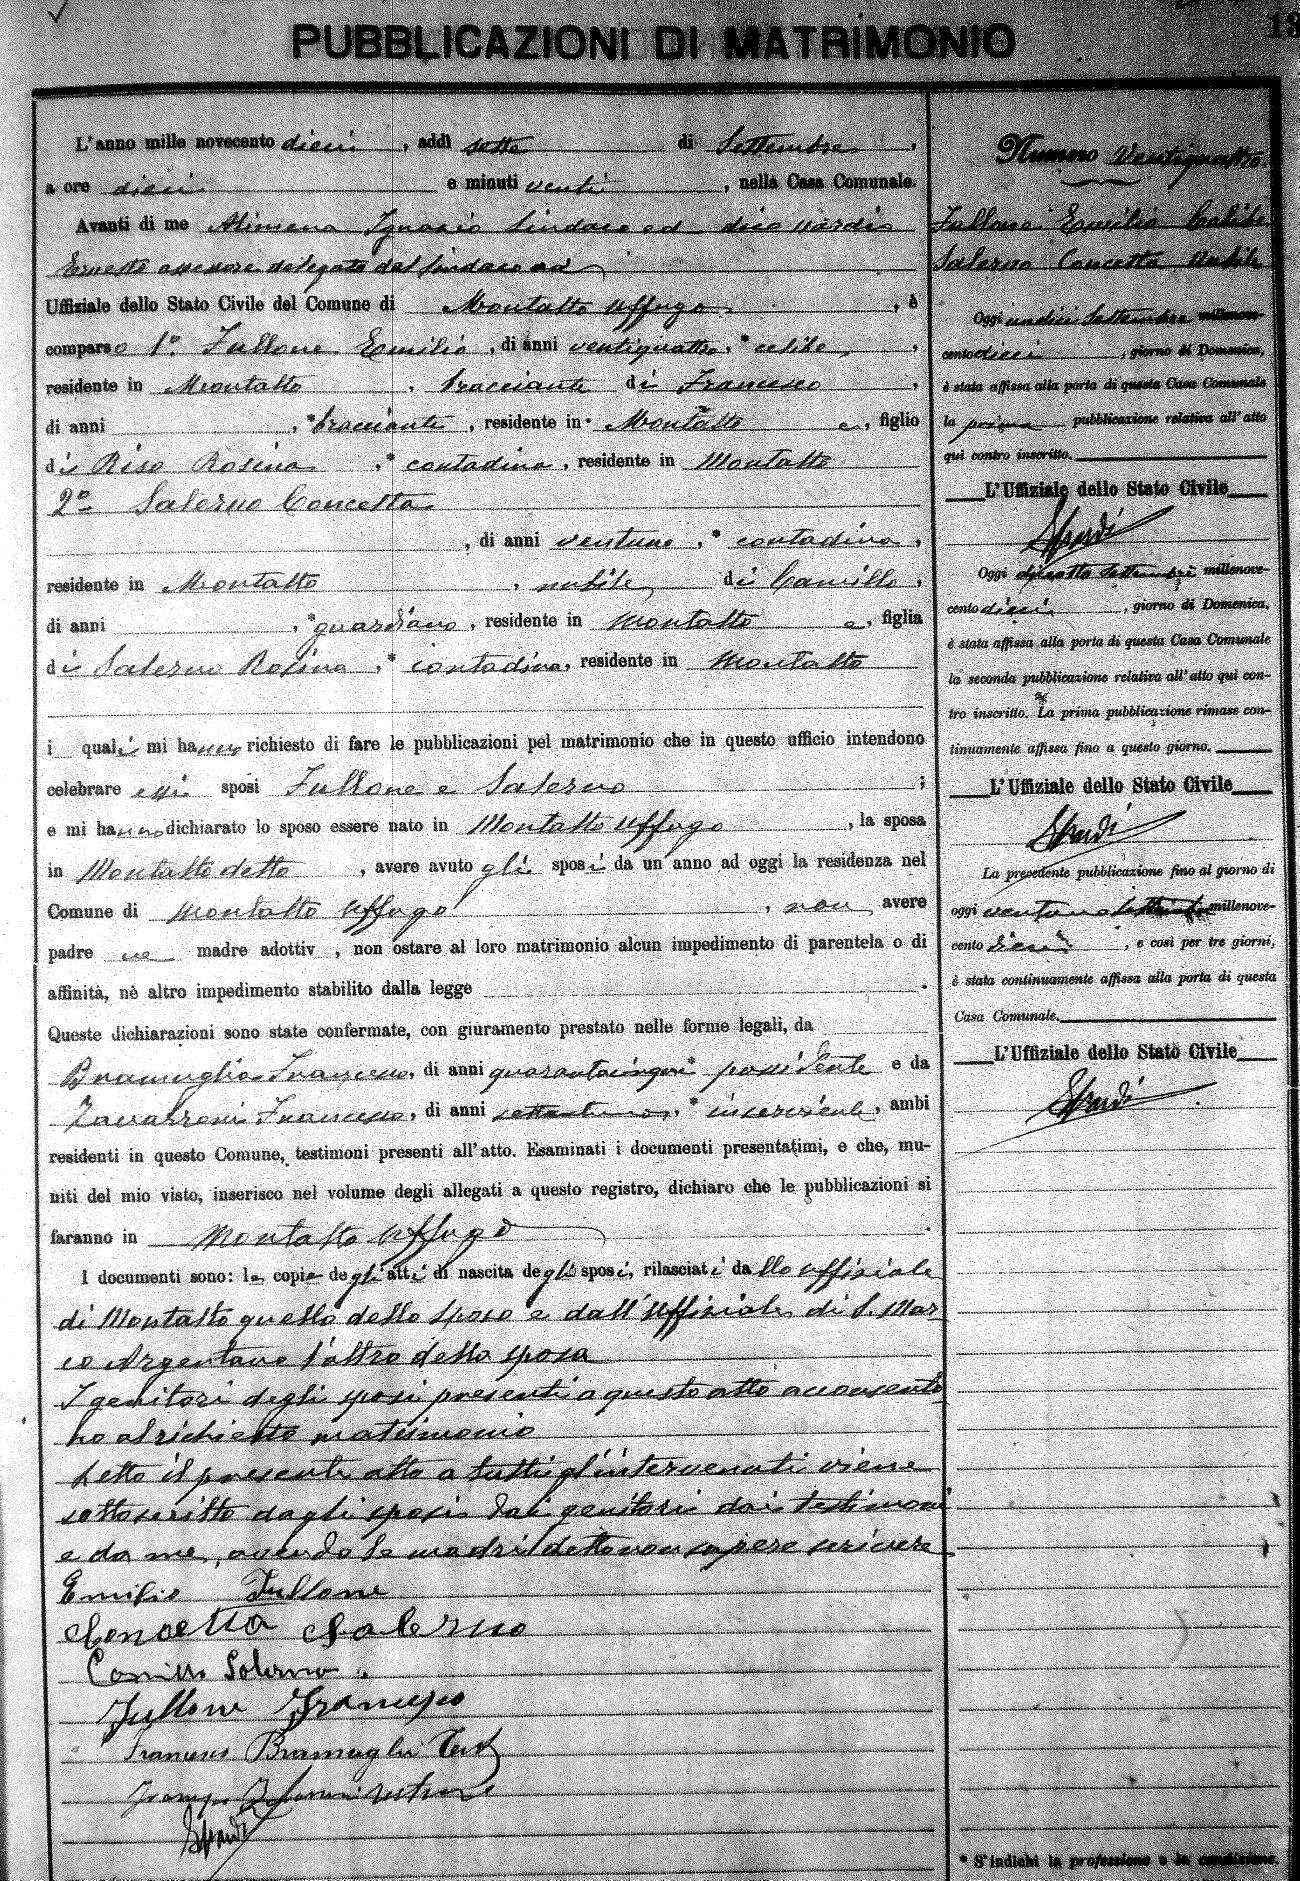 13
PUBBLICAZIONI DI MATRIMONIO
L'anno mille novecento dieci, addì sette di Settembre,
a ore dieci e minuti venti, nella Casa Comunale.
Avanti di me Alimena Ignazio Sindaco ed dico Nardi
Ernesto assessore delegato dal sindaco ad
Uffiziale dello Stato Civile del Comune di Montalto Uffugo, è
comparso 1º. Fullone Emilio, di anni ventiquattro, * celibe,
residente in Montalto, bracciante di Francesco,
di anni , * bracciante, residente in Montalto e, figlio
di Riso Rosina, * contadina, residente in Montalto
2º Salerno Concetta
, di anni ventuno, * contadina,
residente in Montalto, nubile di Camillo,
di anni , * guardiano, residente in Montalto e, figlia
di Salerno Rosina, * contadina, residente in Montalto
i quali mi hanno richiesto di fare le pubblicazioni pel matrimonio che in questo ufficio intendono
celebrare essi sposi Fullone e Salerno ;
e mi hanno dichiarato lo sposo essere nato in Montalto Uffugo, la sposa
in Montalto detto, avere avuto gli sposi da un anno ad oggi la residenza nel
Comune di Montalto Uffugo, non avere
padre ne madre adottiv , non ostare al loro matrimonio alcun impedimento di parentela o di
affinità, nè altro impedimento stabilito dalla legge .
Queste dichiarazioni sono state confermate, con giuramento prestato nelle forme legali, da
Bramuglia Francesco, di anni quarantacinque * possidente e da
Zavarroni Francesco, di anni settantuno, * inserviente, ambi
residenti in questo Comune, testimoni presenti all'atto. Esaminati i documenti presentatimi, e che, mu-
niti del mio visto, inserisco nel volume degli allegati a questo registro, dichiaro che le pubblicazioni si
faranno in Montalto Uffugo .
I documenti sono: le copie degli atti di nascita degli sposi, rilasciati dallo uffiziale
di Montalto quello dello sposo e dall'uffiziale di S. Mar
co Argentano l'altro della sposa
I genitori degli sposi presenti a questo atto acconsento
no al richiesto matrimonio
Letto il presente atto a tutti gl'intervenuti viene
sottoscritto dagli sposi dai genitori dai testimoni
e da me, avendo le madri detto non sapere scrivere
Emilio Fullone
Concetta Salerno
Camillo Salerno
Fullone Francesco
Francesco Bramuglia Test
Numero Ventiquattro.
Fullone Emilio Celibe
Salerno Concetta nubile
Oggi undici Settembre millenove-
cento dieci, giorno di Domenica,
è stata affissa alla porta di questa Casa Comunale
la prima pubblicazione relativa all'atto
qui contro inscritto.
L'Uffiziale dello Stato Civile
Oggi diciotto Settembre millenove-
cento dieci, giorno di Domenica,
è stata affissa alla porta di questa Casa Comunale
la seconda pubblicazione relativa all'atto qui con-
tro inscritto. La prima pubblicazione rimase con-
tinuamente affissa fino a questo giorno.
L'Uffiziale dello Stato Civile
La precedente pubblicazione fino al giorno di
oggi ventuno Settembre millenove-
cento dieci, e così per tre giorni,
è stata continuamente affissa alla porta di questa
Casa Comunale.
L'Uffiziale dello Stato Civile
* S'indichi la professione o la condizione.